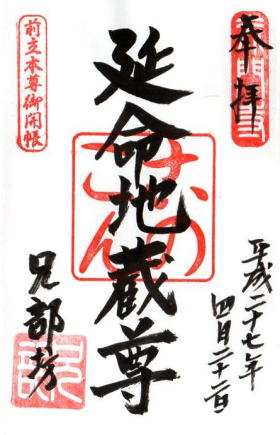 奉拝
平成二十七年
四月二十二日
延命地蔵尊
前立本尊御開帳
兄部坊